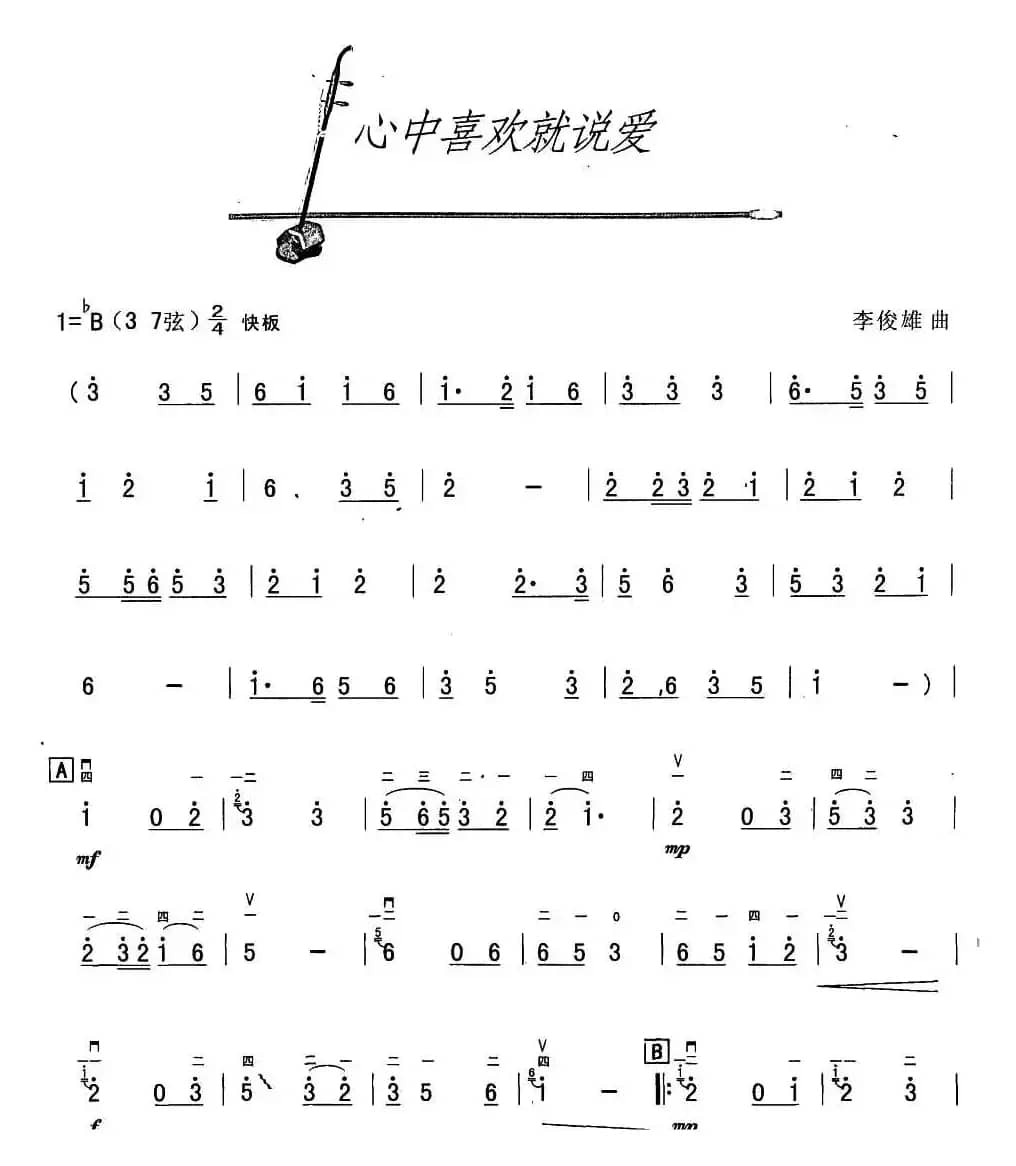 心中喜欢就说爱
1=♭B（3 7弦）2/4 快板 李俊雄 曲
(3̇ 3 5 | 6 i̇ i̇ 6 | i̇· 2̇ i̇ 6 | 3̇ 3̇ 3̇ | 6̇· 5̇ 3̇ 5̇ |
i̇ 2̇ i̇ | 6 3̇ 5̇ | 2̇ – | 2̇ 2̇ 3̇ 2̇ i̇ | 2̇ i̇ 2̇ |
5̇ 5̇ 6̇ 5̇ 3̇ | 2̇ i̇ 2̇ | 2̇ 2̇· 3̇ | 5̇ 6̇ 3̇ | 5̇ 3̇ 2̇ i̇ |
6 – | i̇· 6 5 6 | 3̇ 5̇ 3̇ | 2̇ 6 3̇ 5 | i̇ – ) |
A 四 一 一二 二 三 二 一 一 四 V 一 二 四 二
i̇ 0 2̇ | 2̇ 3̇ 3̇ | 5̇ 6̇ 5̇ 3̇ 2̇ | 2̇ i̇· | 2̇ 0 3̇ | 5̇ 3̇ 3̇ |
mf mp
一 二 四 二 V 一 一二 二 一 0 二 一 四 一 V 一二
2̇ 3̇ 2̇ i̇ 6 | 5 – | 5 6 0 6 | 6 5 3 | 6 5 i̇ 2̇ | 2̇ 3̇ – |
一一 二 四 二 一 二 一 二 V 四 B 一二 一 一一 二
i̇ 2̇ 0 3̇ | 5̇ 3̇ 2̇ | 3̇ 5 6 | 6 i̇ – |: i̇ 2̇ 0 i̇ | i̇ 2̇ 3̇ |
f mp